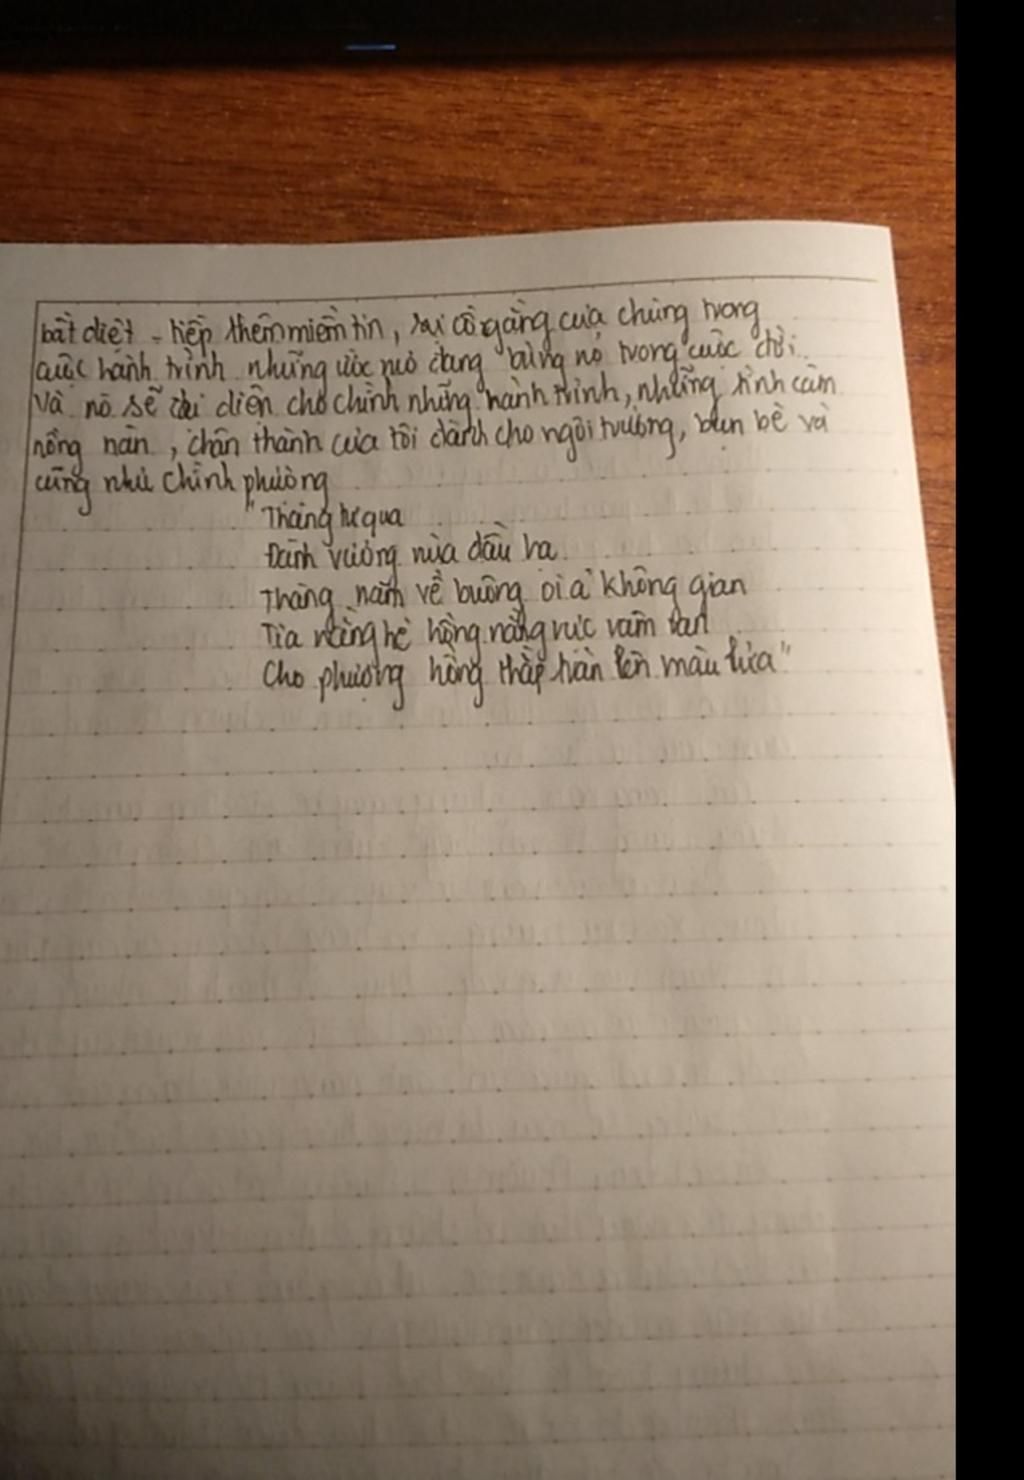 bất diệt - tiếp thêm miềm tin, sự cố gắng của chúng trong
cuộc hành trình những ước mơ đang bùng nổ trong cuộc đời.
Và nó sẽ đại diện cho chính những hành trình, những tình cảm
nồng nàn, chân thành của tôi dành cho ngôi trường, bạn bè và
cũng như chính phường
"Tháng tư qua
Đành vương nửa dấu ba
Tháng năm về buông oi ả không gian
Tia nắng hè hồng nắng rực
Cho phượng hồng thắp tràn lên màu lửa"